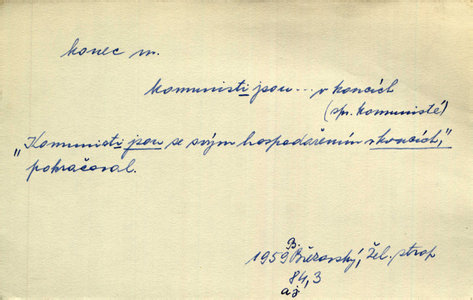 konec m.
komunisti jsou ... v koncích
(spr. komunisté)
„Komunisti jsou se svým hospodařením v koncích,"
pokračoval.
B.
1959 Březovský, Žel. strop
84,3
aj